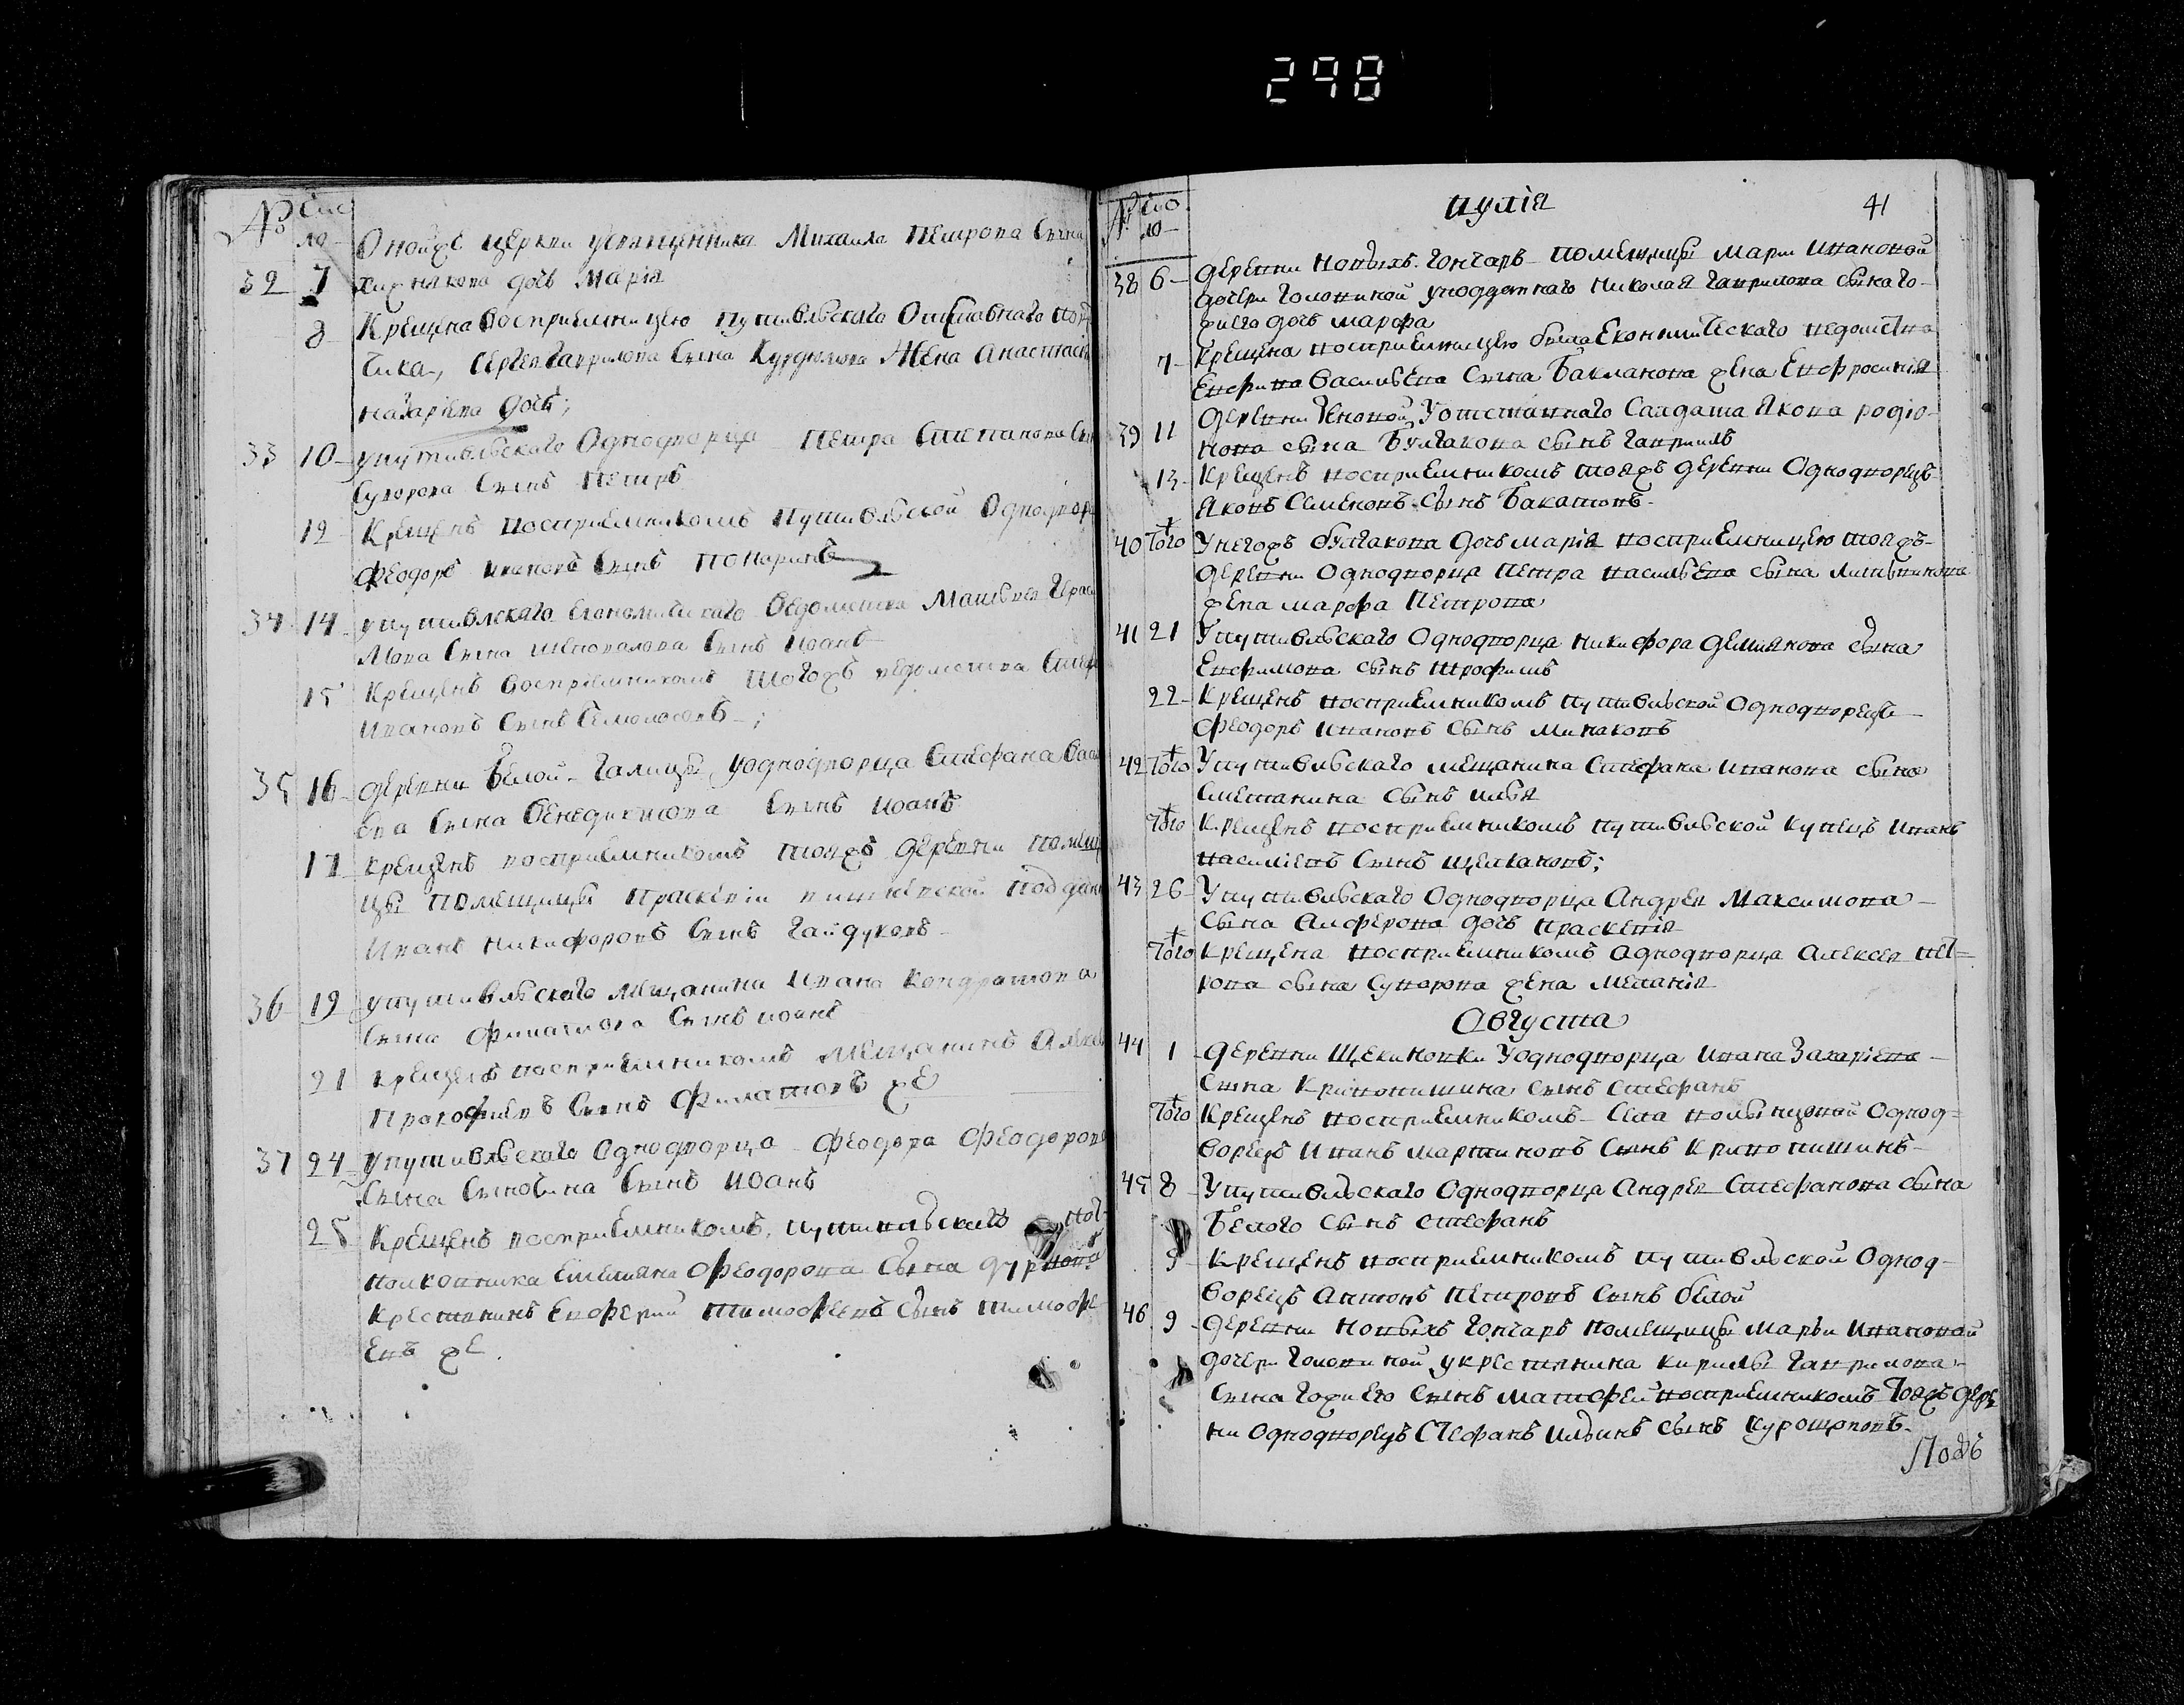 298
№ Чис
ло
Онойже церкви усвященника Михаила Петрова Сына
32 7 Хижнякова дочь Марiя
8 Крещена восприемницею путивльского Отставного
чика, Сергея Гаврилова Сына Курдюмова Жена Анастасiя
Назарiева дочь;
33 10 упутивльского Однодворца Петра Степанова Сына
Суворова Сынъ Петръ
12 Крещенъ восприемникомъ Путивльской Однодворецъ
Феодоръ Ивановъ Сынъ Понаринъ
34 14 упутивлского Економическаго Ведомства Матвея Гераси
мова Сына Шеповалова Сынъ Иоанъ
15 Крещенъ восприемникомъ тогожъ ведомства
Ивановъ Сынъ;
35 16 деревни Белой Галицы, уоднодворца Стефана Васи
ева Сына Венедиктова Сынъ Иоанъ
17 крещенъ восприемникомъ тояжъ деревни помещи
цы помещицы Праскевiи подданой
Иванъ Никифоровъ Сынъ Гайдуковъ
36 19 упутивльского Мещанина Ивана Кондратова
Сына Филатова Сынъ иоанъ
21 крещенъ восприемникомъ Мещанинъ
Прокофиевъ Сынъ Филатовъ же
37 24 упутивльского Однодворца Феодора Феодорова
Сына Сынъ Иоанъ
25 Крещенъ восприемникомъ, путивльского
полковника Емельяна Феодорова Сына
крестянинъ Елферий Тимофеевъ Сынъ Тимофе
евъ же.
№ Чис
ло
иулiя 41
38 6 деревни Новыхъ Гончаръ помещицы Марiи Ивановой
дочери Головиной уподданнаго Николая Гаврилова сына Го
дочь марфа
7 Крещена восприемницею была Економическаго ведомства
Ефима Васильева Сына Бакланова жена Ефросинiя
39 11 деревни уотставнаго Салдата Якова родiо
нова сына Булгакова сынъ Гаврiилъ
13 Крещенъ восприемникомъ тояжъ деревни Однодворецъ
Яковъ Семеновъ Сынъ
40 Того Унегожъ булгакова дочь марiя восприемницею тояжъ
деревни Однодворца Петра васильева сына Литвинова
жена марфа Петрова
41 21 Упутивльскаго Однодворца никифора демянова сына
Ефимова сынъ трофимъ
22 Крещенъ восприемникомъ путивльской Однодворецъ
Феодоръ Ивановъ сынъ Минаковъ
42 Того Упутивльскаго мещанина Стефана Иванова сына
Сметанина сынъ илья
Того Крещенъ восприемникомъ путивльской купецъ Иванъ
василiевъ Сынъ Щекановъ;
43 26 Упутивльскаго Однодворца Андрея Максимова
Сына Алферова дочь праскевiя
Того Крещена восприемникомъ однодворца Алексея пет=
рова сына Суворова жена меланiя
Августа
44 1 деревни Щекиновки Уоднодворца Ивана Захарiева
Сына Кривопишина Сынъ Стефанъ
Того Крещенъ восприемникомъ Села Однод=
ворецъ Иванъ Мартиновъ Сынъ Кривопишинъ
45 8 Упутивльскаго Однодворца Андрея Стефанова сына
Белого Сынъ стефанъ
9 Крещенъ восприемникомъ путивльской Однод
ворецъ Антонъ Петровъ Сынъ белой
46 9 деревни Новыхъ Гончаръ Помещицы Марьи Ивановой
дочери Головиной, укрестянина кирилы Гаврилова
Сына Сынъ Матфей восприемникомъ тояжъ дере
ни Однодворецъ Стефанъ Ильинъ сынъ